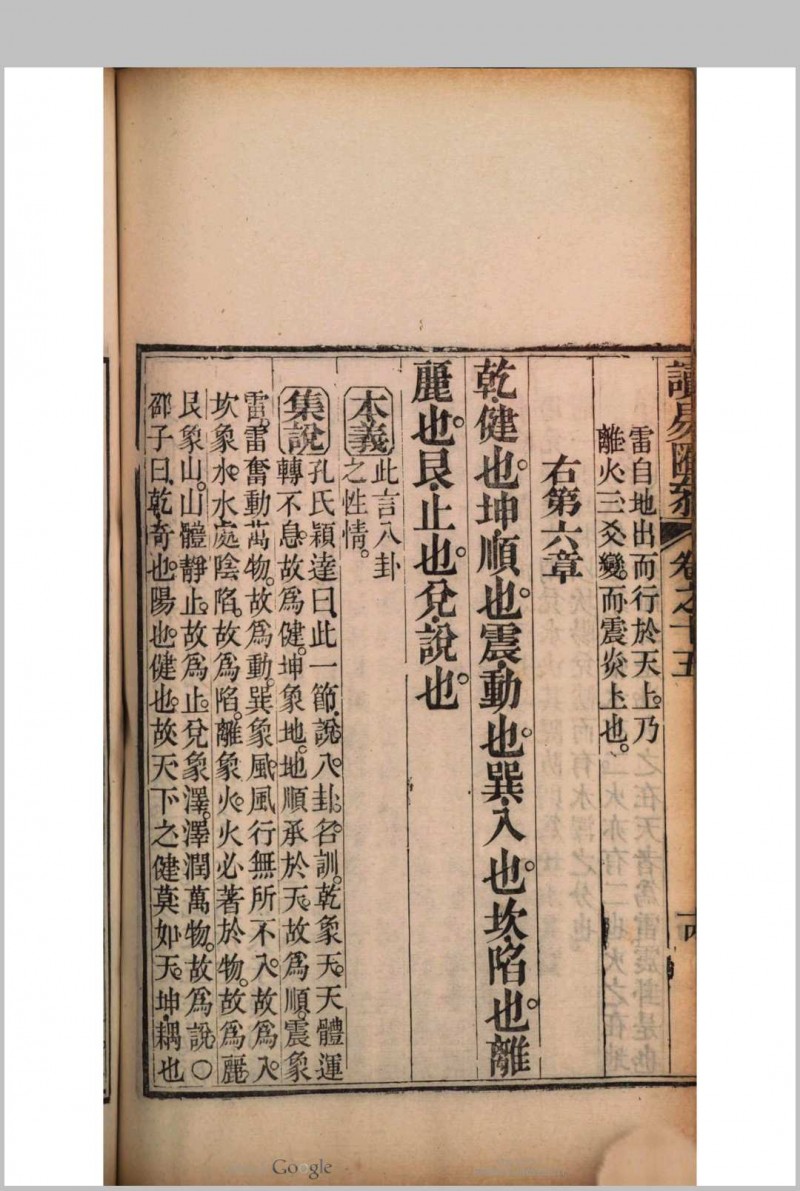 讀易匯參 卷之十五
雷自地出而行於天上。乃
離火三爻變。而震炎上也。
右第六章
乾健也。坤順也。震動也。巽入也。坎陷也。離
麗也。艮止也。兌說也。
本義
此言八卦
之性情。
集說
孔氏穎達曰。此一節說八卦名訓。乾象天。天體運
轉不息。故爲健。坤象地。地順承於天。故爲順。震象
雷。雷奮動萬物。故爲動。巽象風。風行無所不入。故爲入。
坎象水。水處陰陷。故爲陷。離象火。火必著於物。故爲麗。
艮象山。山體靜止。故爲止。兌象澤。澤潤萬物。故爲說。○
邵子曰。乾奇也。陽也。健也。故天下之健莫如天。坤耦也
Google